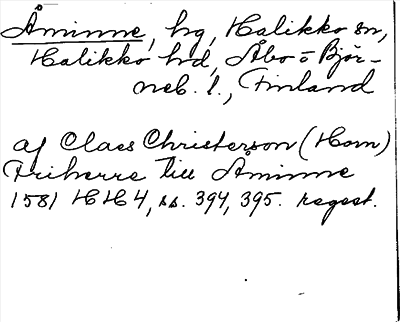 Åminne, hg, Halikko sn,
Halikko hd, Åbo o Björ-
neb. l., Finland
af Claes Christersson (Horn)
Friherre till Åminne
1581 HH4, ss. 394, 395. regest.